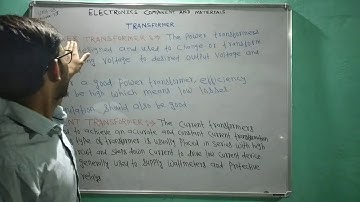 ELECTRONICS COMPONENT AND MATERIALS
TRANSFORMER
TRANSFORMER :→ The Power transformers
and used to change or transform
voltage to desired output voltage and
a good Power transformer efficiency
be high which means low losses
should also be good
TRANSFORMER :→ The Current transformers
to achieve an accurate and constant current transformation
type of transformer is usually placed in series with high
and steps down current to drive low current device
generally used to supply wattmeters and protective
relays